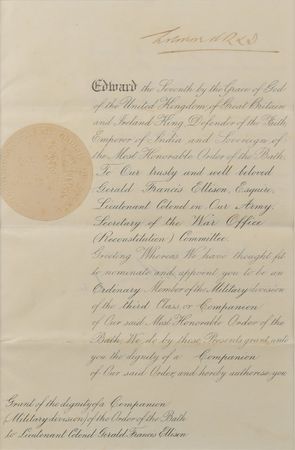 Edward the Seventh by the Grace of God
of the United Kingdom of Great Britain
and Ireland King, Defender of the Faith
Emperor of India and Sovereign of
the Most Honorable Order of the Bath.
To Our trusty and well beloved
Gerald Francis Ellison, Esquire,
Lieutenant Colonel in Our Army,
Secretary of the War Office
(Reconstitution) Committee.
Greeting Whereas We have thought fit
to nominate and appoint you to be an
Ordinary Member of the Military division
of the third Class or Companion
of Our said Most Honorable Order of the
Bath We do by these Presents grant unto
you the dignity of a Companion
of Our said Order, and hereby authorise you
Grant of the dignity of a Companion
(Military division) of the Order of the Bath
to Lieutenant Colonel Gerald Francis Ellison